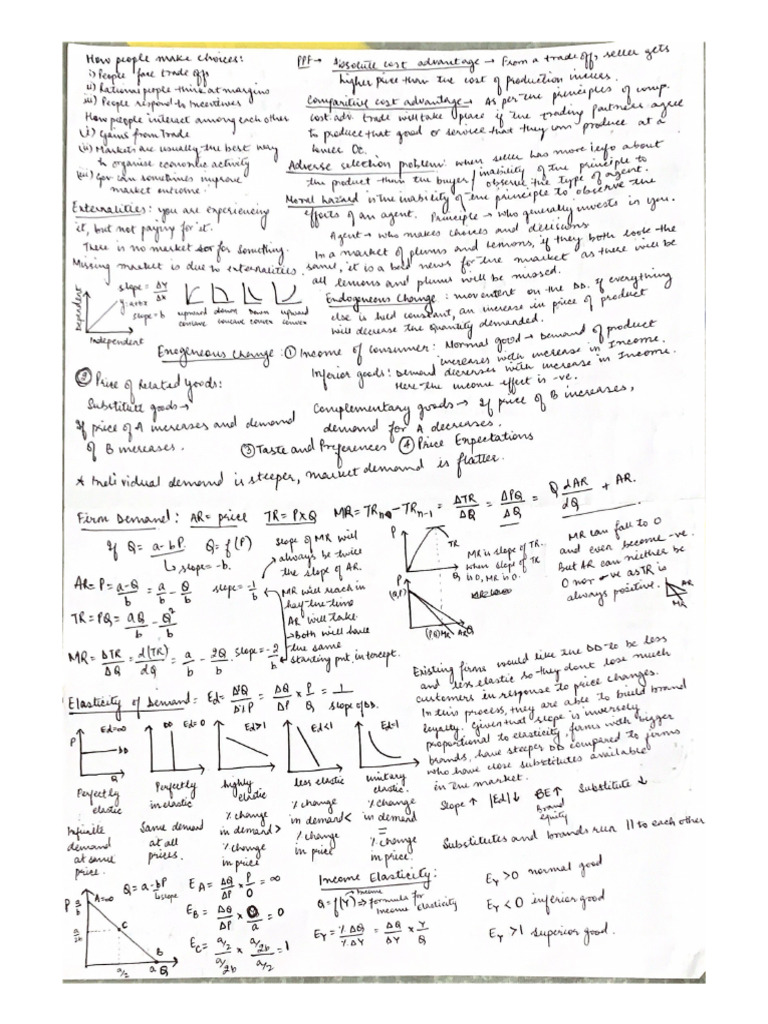 How people make choices:
i) People face trade offs
ii) Rational people think at margins
iii) People respond to Incentives
How people interact among each other
(i) Gains from Trade
(ii) Markets are usually the best way
to organise economic activity
(iii) Gov can sometimes improve
market outcome.
Externalities: you are experiencing
it, but not paying for it.
There is no market for something.
Missing market is due to externalities.
PPF → Absolute cost advantage → From a trade off, seller gets
higher price than the cost of production incurs.
Comparitive cost advantage → As per the principles of comp.
cost adv. trade will take place if the trading partners agree
to produce that good or service that they can produce at a
lower OC.
Adverse selection problem: when seller has more info about
the product than the buyer / inability of the principle to
observe the type of agent.
Moral hazard is the inability of the principle to observe the
efforts of an agent. Principle → who generally invests in you.
Agent → who makes choices and decisions
In a market of plums and lemons, if they both look the
same, it is a bad news for the market as there will be
all lemons and plums will be missed.
Dependent
slope = ΔY/ΔX
y=a+bx
slope = b
Independent
upward concave
down concave
down convex
upward convex
Endogeneous change: movement on the DD. If everything
else is held constant, an increase in price of product
will decrease the quantity demanded.
Exogeneous change: ① Income of consumer: Normal good → Demand of product
increases with increase in Income.
Inferior goods: Demand decreases with increase in Income.
Here the income effect is -ve.
② Price of Related goods:
Substitute goods →
If price of A increases and demand
of B increases.
Complementary goods → If price of B increases,
demand for A decreases.
③ Taste and Preferences ④ Price Expectations
* Individual demand is steeper, market demand is flatter.
Firm Demand: AR = price TR = P×Q MR = TRn - TRn-1 = ΔTR/ΔQ = ΔPQ/ΔQ = Q dAR/dQ + AR.
If Q = a-bP Q = f(P)
↳ slope = -b.
AR = P = a-Q/b = a/b - Q/b slope = -1/b
TR = PQ = aQ/b - Q²/b
MR = ΔTR/ΔQ = d(TR)/dQ = a/b - 2Q/b slope = -2/b
slope of MR will
always be twice
the slope of AR.
MR will reach in
half the time
AR will take.
→ Both will have
the same
starting pnt, intercept.
P
TR
Q
MR is slope of TR.
when slope of TR
is 0, MR is 0.
P
(a,P)
MR
AR
Q
MR can fall to 0
and even become -ve.
But AR can neither be
0 nor -ve as TR is
always positive.
AR
MR
Elasticity of Demand: Ed = %Q/%P = ΔQ/ΔP × P/Q = 1/slope of DD.
P
Ed=∞
DD
Q
Perfectly
elastic
Infinite
demand
at same
price.
DD
Ed=0
Perfectly
inelastic
Same demand
at all
prices.
Ed>1
highly
elastic
% change
in demand >
% change
in price
Ed<1
less elastic
% change
in demand <
% change
in price
Ed=1
unitary
elastic
% change
in demand
=
% change
in price.
Existing firms would like the DD to be less
and less elastic so they dont lose much
customers in response to price changes.
In this process, they are able to build brand
loyalty. Given that slope is inversely
proportional to elasticity, firms with bigger
brands, have steeper DD compared to firms
who have close substitutes available
in the market.
Slope ↑ |Ed|↓ BE↑ Substitute ↓
brand
equity
Substitutes and brands run || to each other
P
a/b
A=∞
a/2b
C
B
a/2
a
Q
Q = a-bP
slope
EA = ΔQ/ΔP × P/0 = ∞
EB = ΔQ/ΔP × 0/a = 0
EC = a/2/a/2b × a/2b/a/2 = 1
Income Elasticity:
Q = f(Y) → Income ⇒ formula for
income elasticity
EY = % ΔQ/% ΔY = ΔQ/ΔY × Y/Q
EY > 0 normal good
EY < 0 inferior good
EY > 1 superior good.